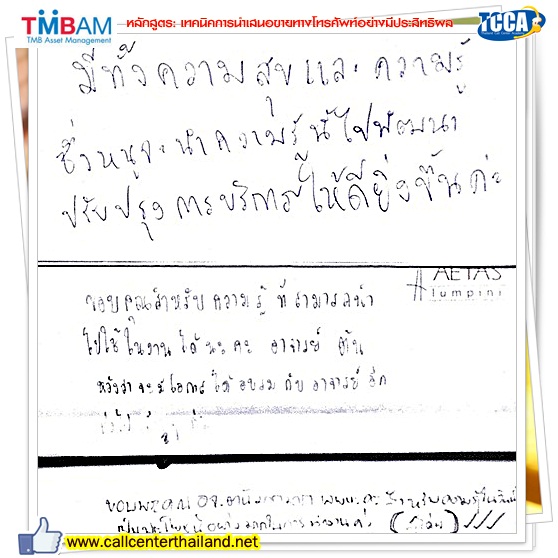 TMBAM
TMB Asset Management
หลักสูตร: เทคนิคการนำเสนอขายทางโทรศัพท์อย่างมีประสิทธิผล
TCCA
มีทั้งความสุขและความรู้
ซึ่งหนูจะนำความรู้นี้ไปพัฒนา
ปรับปรุงการบริการให้ดียิ่งขึ้นค่ะ
AETAS
lumpini
ขอบคุณสำหรับความรู้ที่สามารถนำ
ไปใช้ในงานได้นะคะ อาจารย์ ต้น
หวังว่าจะมีโอกาสได้อบรมกับอาจารย์อีก
www.callcenterthailand.net